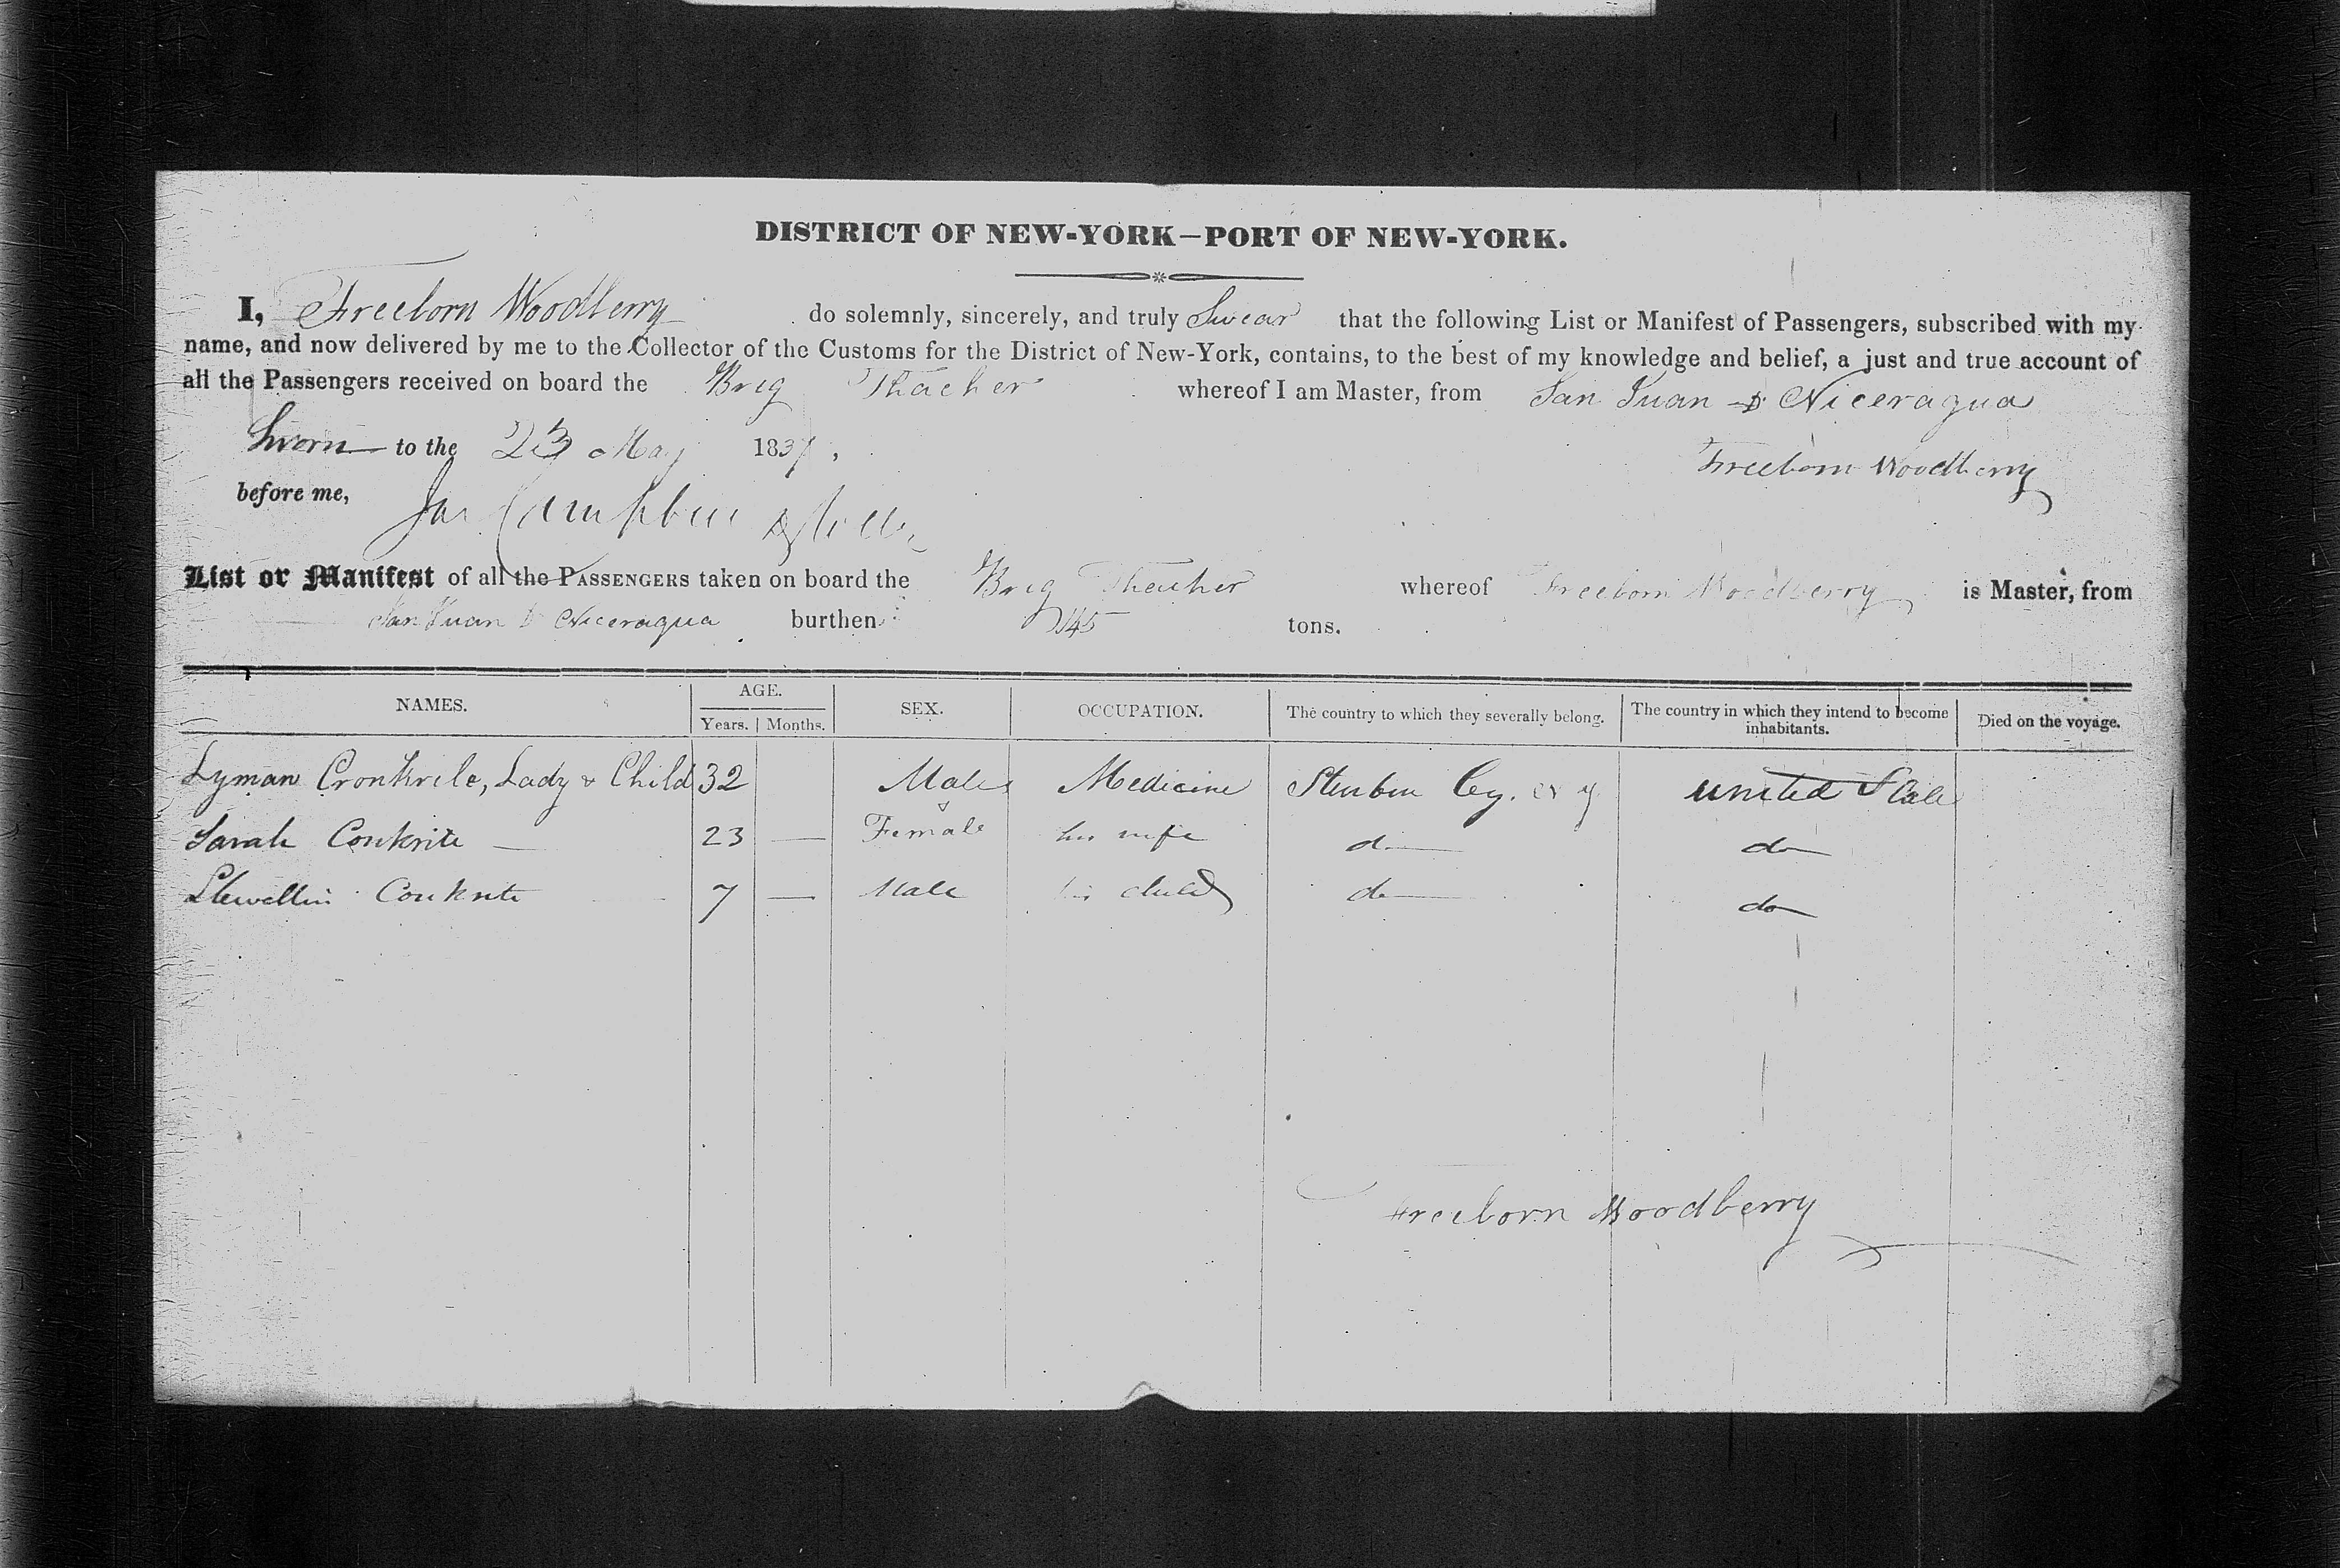 DISTRICT OF NEW-YORK—PORT OF NEW-YORK.
I, Freeborn Woodberry do solemnly, sincerely, and truly Swear that the following List or Manifest of Passengers, subscribed with my
name, and now delivered by me to the Collector of the Customs for the District of New-York, contains, to the best of my knowledge and belief, a just and true account of
all the Passengers received on board the Brig Thacher whereof I am Master, from San Juan D Niceragua
Sworn to the 23 May 1837,
Freeborn Woodberry
before me, Jas Campbell
List or Manifest of all the PASSENGERS taken on board the Brig Thacher whereof Freeborn Woodberry is Master, from
San Juan D Niceragua burthen 145 tons.
NAMES. AGE. SEX. OCCUPATION. The country to which they severally belong. The country in which they intend to become inhabitants. Died on the voyage.
Years. Months.
Lyman Cronkrite, Lady & Child 32 Male Medicine Steuben Cy. N Y United State
Sarah Conkrite — 23 — Female his wife do do
Llewellin Conkrite 7 — Male his child do do
Freeborn Woodberry